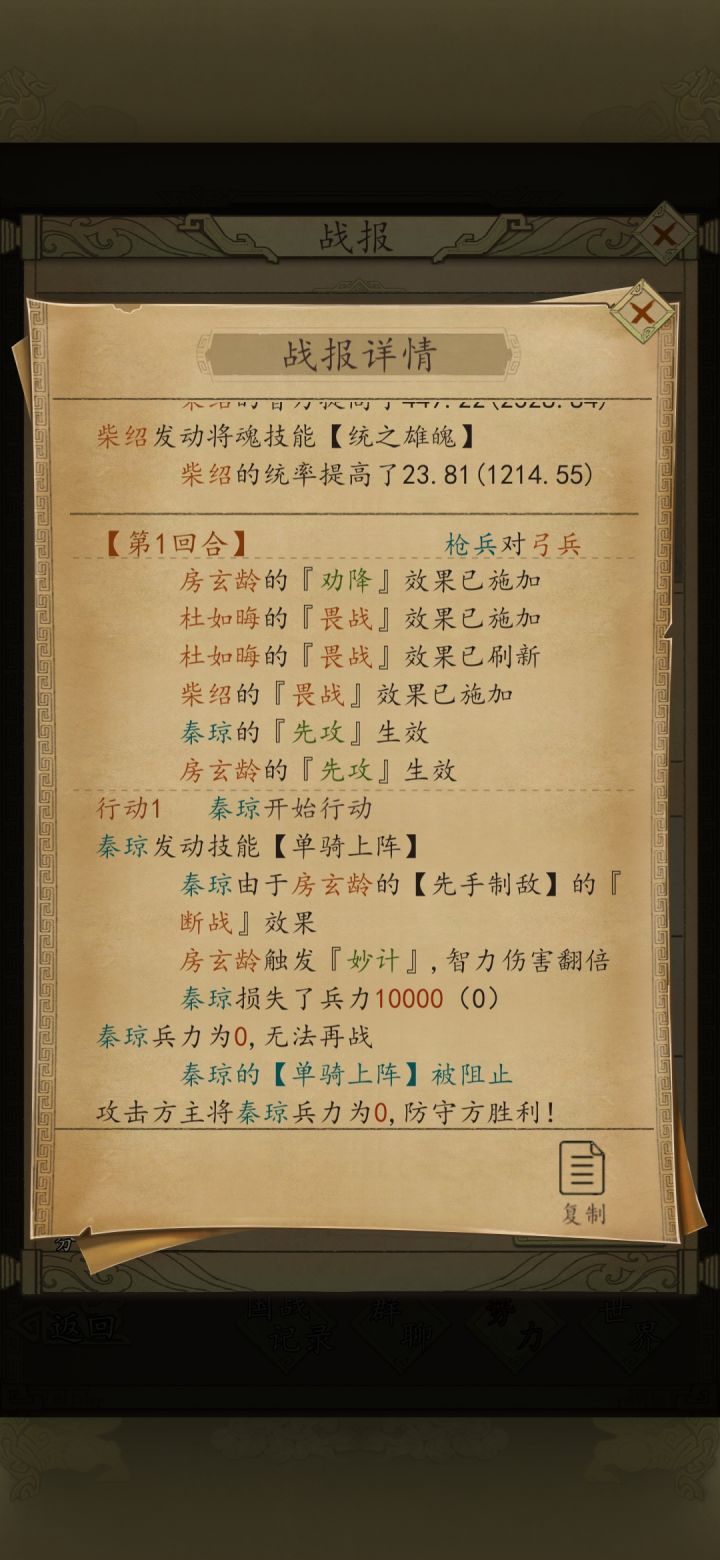 战报
战报详情
柴绍发动将魂技能【统之雄魄】
柴绍的统率提高了23.81(1214.55)
【第1回合】 枪兵对弓兵
房玄龄的『劝降』效果已施加
杜如晦的『畏战』效果已施加
杜如晦的『畏战』效果已刷新
柴绍的『畏战』效果已施加
秦琼的『先攻』生效
房玄龄的『先攻』生效
行动1 秦琼开始行动
秦琼发动技能【单骑上阵】
秦琼由于房玄龄的【先手制敌】的『
断战』效果
房玄龄触发『妙计』,智力伤害翻倍
秦琼损失了兵力10000（0）
秦琼兵力为0,无法再战
秦琼的【单骑上阵】被阻止
攻击方主将秦琼兵力为0,防守方胜利!
复制
返回
国战
记录
群
聊
势
力
世
界